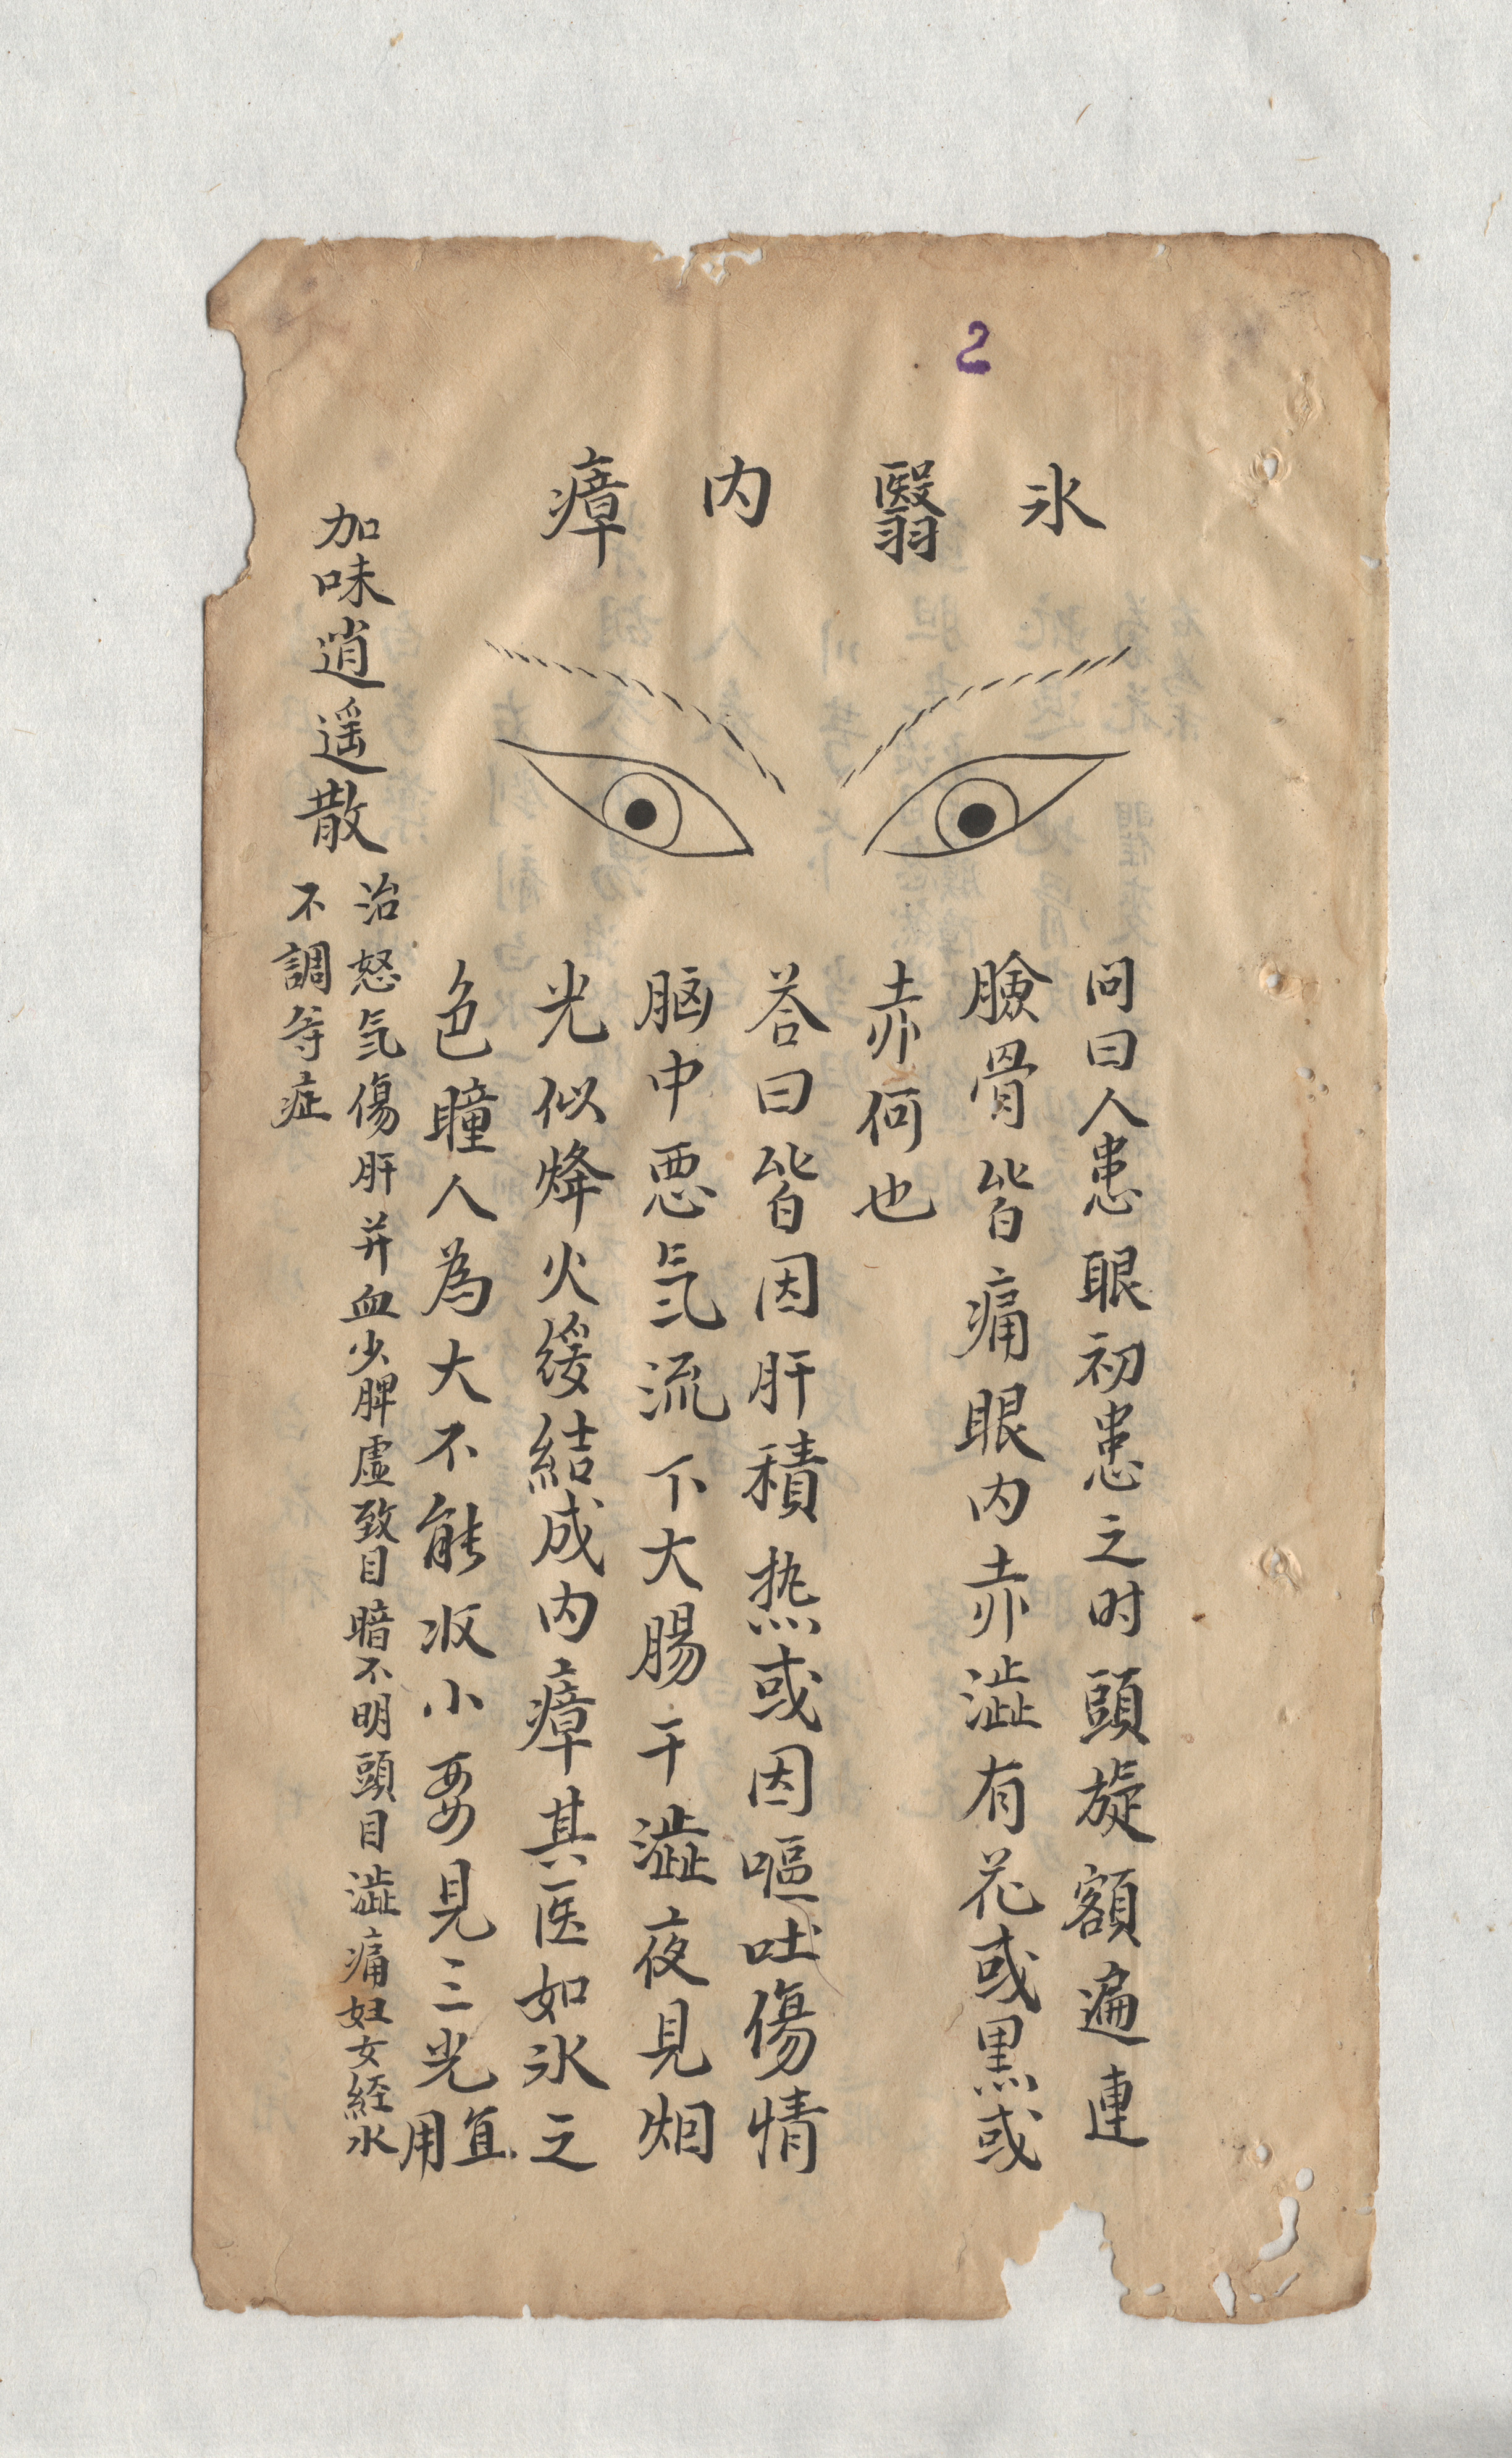 2
氷翳内瘴
問曰人患眼初患之时頭旋額遍連
臉骨皆痛眼内赤澁有花或黒或
赤何也
荅曰皆因肝積热或因嘔吐傷情
脳中悪気流下大腸干澁夜見烟
光似烽火緩結成内瘴其医如氷之
色瞳人為大不能收小要見三光宜用
加味逍遥散
治怒気傷肝并血少脾虚致目暗不明頭目澁痛妇女経水
不調等症